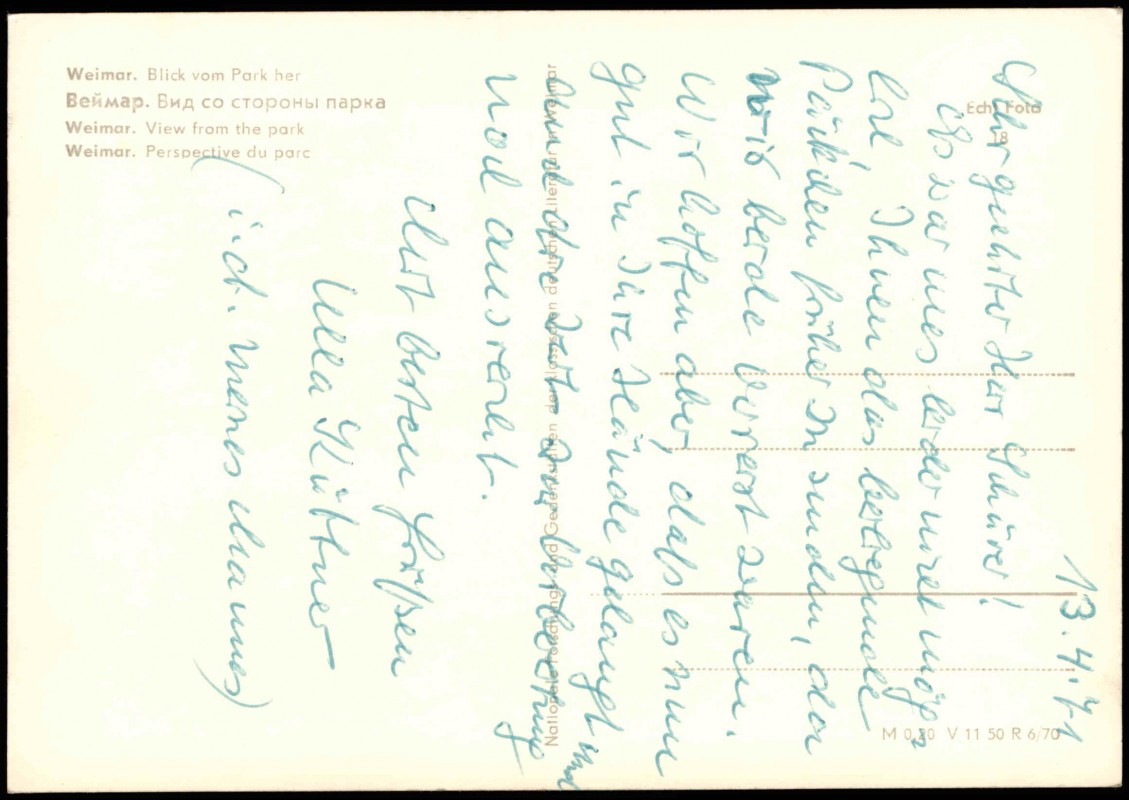 Weimar. Blick vom Park her
Веймар. Вид со стороны парка
Weimar. View from the park
Weimar. Perspective du parc
Echt Foto
18
Nationale Forschungs- und Gedenkstätten der klassischen deutschen Literatur in Weimar
M 0,20 V 11 50 R 6/70
13.4.71
Sehr geehrter Herr Schürer!
Es war uns leider nicht mög-
lich, Ihnen das beiliegende
Päckchen früher zu senden, da
wir beide verreist waren.
Wir hoffen aber, daß es nun
gut in Ihre Hände gelangt und
die Zeit zur
noch ausreicht.
Mit besten Grüßen
Ulla Küttner
(i. A. meines Mannes)